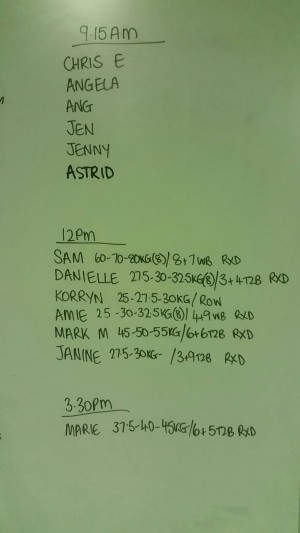 9.15AM
CHRIS E
ANGELA
ANG
JEN
JENNY
ASTRID
12PM
SAM 60-70-80KG(8)/8+7WB RXD
DANIELLE 27.5-30-32.5KG(8)/3+4T2B RXD
KORRYN 25-27.5-30KG/ROW
AMIE 25-30-32.5KG(8)/4+9WB RXD
MARK M 45-50-55KG/6+6T2B RXD
JANINE 27.5-30KG- /3+9T2B RXD
3.30PM
MARIE 37.5-40-45KG/6+5T2B RXD